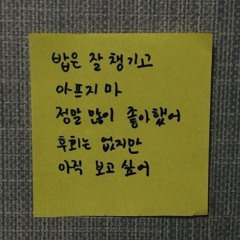 밥은 잘 챙기고
아프지 마
정말 많이 좋아했어
후회는 없지만
아직 보고 싶어